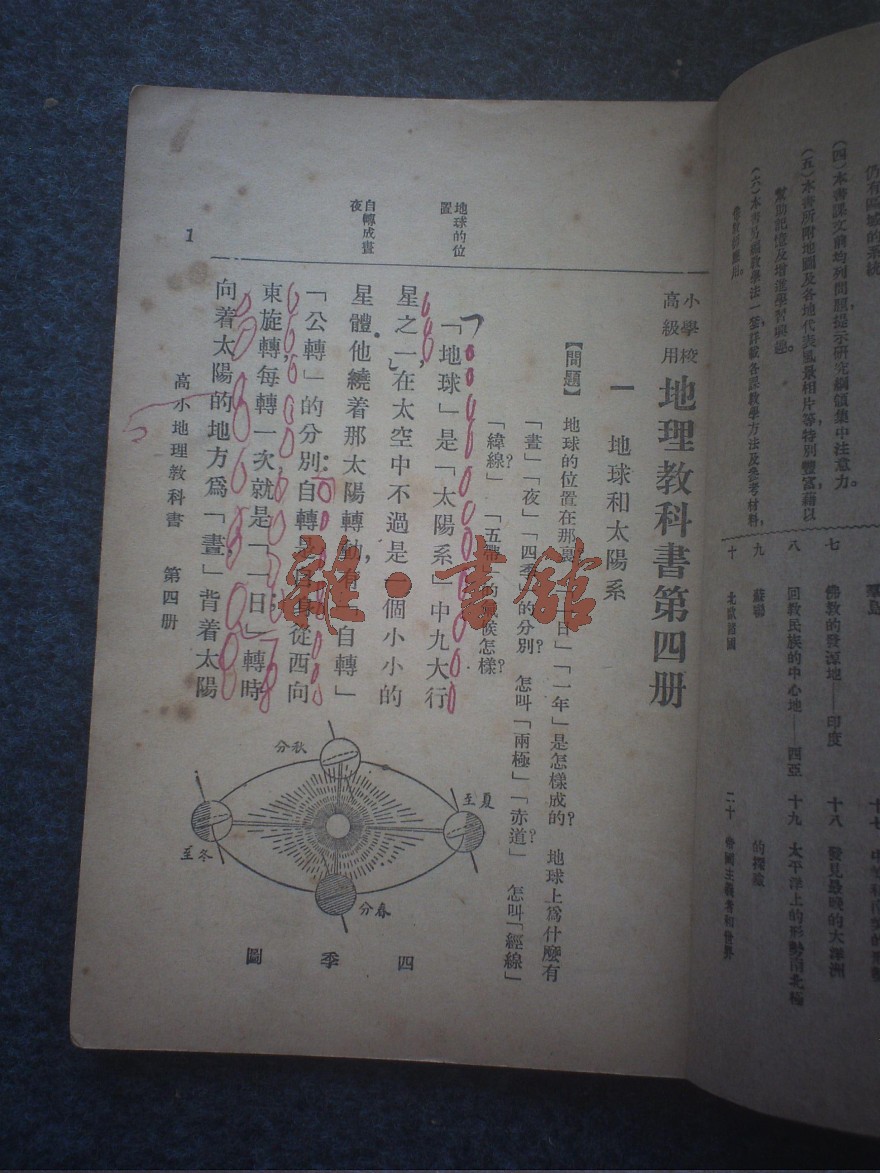 仍有區域的系統
（四）本書課文前均列問題，提示研究綱領集中注意力。
（五）本書所附地圖及各地代表風景相片等，特別豐富藉以
幫助記憶及增進學習興趣。
（六）本書另編教學法一套，詳載各課教學方法及參考材料，
七　佛敎的發源地——印度
八　回敎民族的中心地——西亞
九　蘇聯
十　北歐諸國
十八　發見最晚的大洋洲
十九　太平洋上的形勢南北極
的探險
二十　帝國主義者和世界
小學校
高級用
地理教科書第四册
一　地球和太陽系
【問題】　地球的位置在那裏？「一日」「一年」是怎樣成的？　地球上爲什麼有
「晝」「夜」「四季」的分別？　怎叫「兩極」「赤道」？　怎叫「經線」
「緯線」？「五帶」的氣候怎樣？
地球的位
置
「地球」是「太陽系」中九大行
星之一，在太空中不過是一個小小的
星體他繞着那太陽轉動，有「自轉」
自轉成晝
夜
「公轉」的分別：自轉是自身從西向
東旋轉，每轉一次，就是「一日」；轉時
向着太陽的地方爲「晝，」背着太陽
秋分
夏至
冬至
春分
四季圖
高小地理教科書　第四册
1
雜·書館